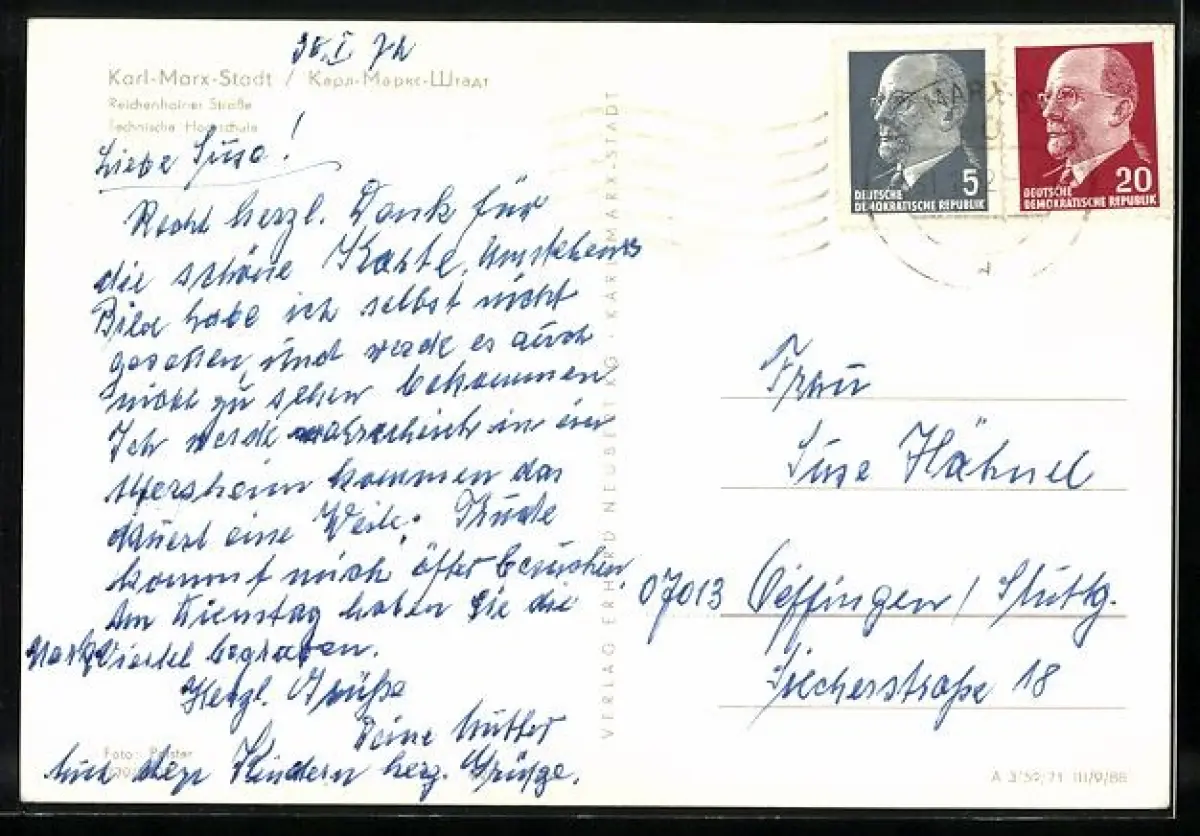 30.I 72
Karl-Marx-Stadt / Карл-Маркс-Штадт
Reichenhainer Straße
Technische Hochschule
Liebe Suse!
Recht herzl. Dank für
die schöne Karte. Umstehendes
Bild habe ich selbst nicht
gesehen, und werde es auch
nicht zu sehen bekommen
Ich werde wahrscheinlich in ein
Altersheim kommen das
dauert eine Weile. Trude
kommt mich öfter besuchen.
Am Dienstag haben Sie die
Viertel begraben.
Herzl. Grüße
Deine Mutter
Auch den Kindern herz. Grüße.
Foto:
VERLAG ERHARD NEUBERT KG · KARL-MARX-STADT
5
DEUTSCHE
DEMOKRATISCHE REPUBLIK
20
DEUTSCHE
DEMOKRATISCHE REPUBLIK
MARX
Frau
Suse Hähnel
07013 Oeffingen / Stuttg.
Silcherstraße 18
A 3/59/71 III/9/88